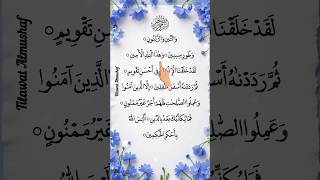 بِسْمِ اللَّهِ الرَّحْمَٰنِ الرَّحِيمِ
وَالتِّينِ وَالزَّيْتُونِ
وَطُورِ سِينِينَ وَهَٰذَا الْبَلَدِ الْأَمِينِ
لَقَدْ خَلَقْنَا الْإِنْسَانَ فِي أَحْسَنِ تَقْوِيمٍ
ثُمَّ رَدَدْنَاهُ أَسْفَلَ سَافِلِينَ إِلَّا الَّذِينَ آمَنُوا
وَعَمِلُوا الصَّالِحَاتِ فَلَهُمْ أَجْرٌ غَيْرُ مَمْنُونٍ
فَمَا يُكَذِّبُكَ بَعْدُ بِالدِّينِ أَلَيْسَ اللَّهُ
بِأَحْكَمِ الْحَاكِمِينَ
Tilawat Almushaf
Tilawat Almushaf
لَقَدْ خَلَقْنَا
ثُمَّ رَدَدْنَاهُ
وَعَمِلُوا الصَّا
تَقْوِيمٍ
الَّذِينَ آمَنُوا